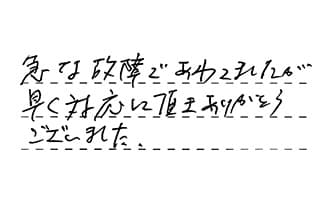 急な故障であわてましたが
早く対応に頂きありがとう
ございました、